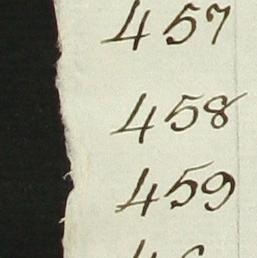 457
458
459